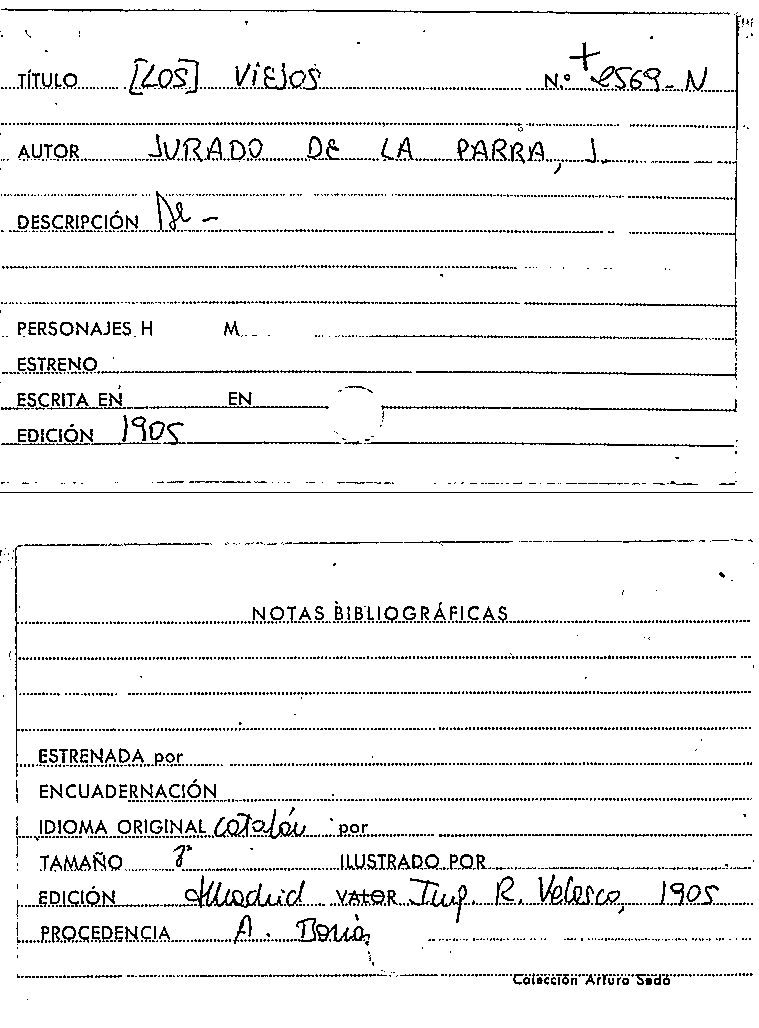 TÍTULO [LOS] VIEJOS N.º + 2569-N
AUTOR JURADO DE LA PARRA, J.
DESCRIPCIÓN De -
PERSONAJES H M
ESTRENO
ESCRITA EN EN
EDICIÓN 1905
NOTAS BIBLIOGRÁFICAS
ESTRENADA por
ENCUADERNACIÓN
IDIOMA ORIGINAL catalán por
TAMAÑO 8º ILUSTRADO POR
EDICIÓN Madrid VALOR Imp. R. Velasco, 1905
PROCEDENCIA A.
Colección Arturo Sedó